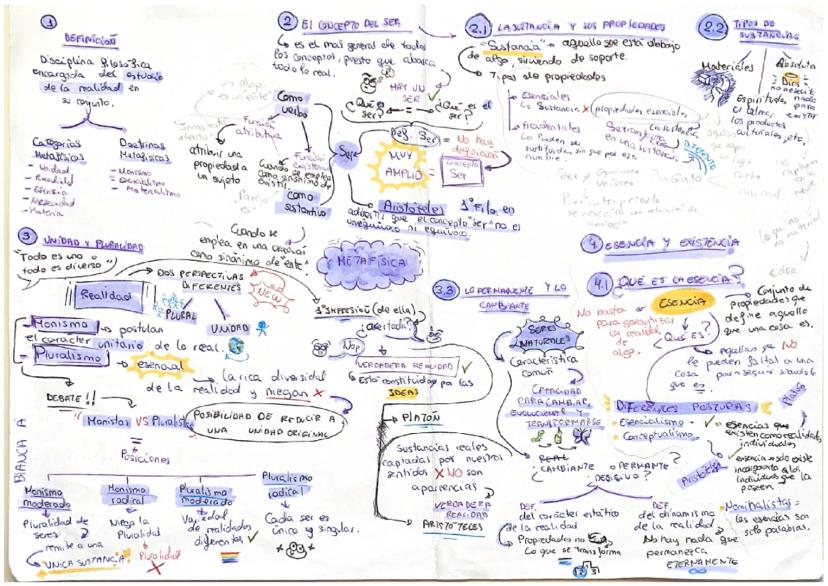 1
DEFINICIÓN
Disciplina filosófica
encargada del estudio
de la realidad en
su conjunto.
Categorías
Metafísicas
- Unidad
- Pluralidad
- Esencia
- Necesidad
- Materia
Doctrinas
Metafísicas
- Monismo
- Esencialismo
- Materialismo
2 El CONCEPTO DEL SER
es el más general de todos
los conceptos, puesto que abarca
todo lo real.
HAY UN
SER
¿Qué es
ser?
=
¿Qué es el
ser?
Como
verbo
Función
atributiva
atribuir una
propiedad a
un sujeto
Función
existencial
Cuando se emplea
como sinónimo de
existir
Ser
Como
sustantivo
Cuando se
emplea en una oración
como sinónimo de "ente"
Def. Ser = No hay
definición
MUY
AMPLIO
Concepto
Ser
Aristóteles 1º Filo. en
advertir que el concepto "ser" no es
unequívoco ni equívoco
2.1 LA SUSTANCIA Y SUS PROPIEDADES
"Sustancia" → aquello que está debajo
de algo, sirviendo de soporte.
Tipos de propiedades
Esenciales
La Sustancia X (propiedades esenciales)
Accidentales
Pueden ser
sustituidas sin que por eso
nombre
DIFERENTE
2.2 TIPOS DE
SUSTANCIAS
Materiales
Absoluta
Dios
no necesita
nada para
existir
Espirituales
el alma,
los productos
culturales, etc.
METAFÍSICA
3 UNIDAD Y PLURALIDAD
"Todo es uno o
todo es diverso"
DOS PERSPECTIVAS
DIFERENTES
NEW
Realidad
PLURAL
UNIDAD
- Monismo → postulan
el carácter unitario de lo real.
- Pluralismo → esencial
la rica diversidad
de la realidad y niegan X
POSIBILIDAD DE REDUCIR A
UNA UNIDAD ORIGINAL
DEBATE!!
Monistas VS Pluralistas
=
Posiciones
Monismo
moderado
Pluralidad de
seres
remite a una
"UNICA SUSTANCIA"
Monismo
radical
Niega la
Pluralidad
Pluralidad
X
Pluralismo
moderado
Variedad
de realidades
diferentes ✓
Pluralismo
radical
Cada ser es
único y singular.
BIANCA A
1ª IMPRESIÓN (de ella)
¿acertada?
Nop
VERDADERA REALIDAD ✓
Está constituida por las
IDEAS
PLATÓN
Sustancias reales
captadas por nuestros
sentidos X NO son
apariencias
VERDADERA
REALIDAD
ARISTÓTELES
3.3 LO PERMANENTE Y LO
CAMBIANTE
SERES
NATURALES
Característica
común
CAPACIDAD
PARA CAMBIAR
EVOLUCIONAR Y
TRANSFORMARSE
REAL
¿CAMBIANTE o PERMANTE?
DEF
del carácter estático
de la realidad
Propiedades no
Lo que se transforma
DEF
del dinamismo
de la realidad
No hay nada que
permanezca
ETERNAMENTE
4. ESENCIA Y EXISTENCIA
4.1 ¿QUÉ ES LA ESENCIA?
ESENCIA
Conjunto de
propiedades que
define aquello
que una cosa es.
No basta
para garantizar
la realidad
de algo.
¿QUÉ ES?
Aquellas que NO
le pueden faltar a una
cosa para seguir siendo lo
que es.
DIFERENTES POSTURAS
- Esencialismo
- Conceptualismo
Platón
Esencias que
existen como realidades
individuales
Aristóteles
esencia solo existe
incorporada a los
individuos que la
poseen
- Nominalistas =
las esencias son
solo palabras.